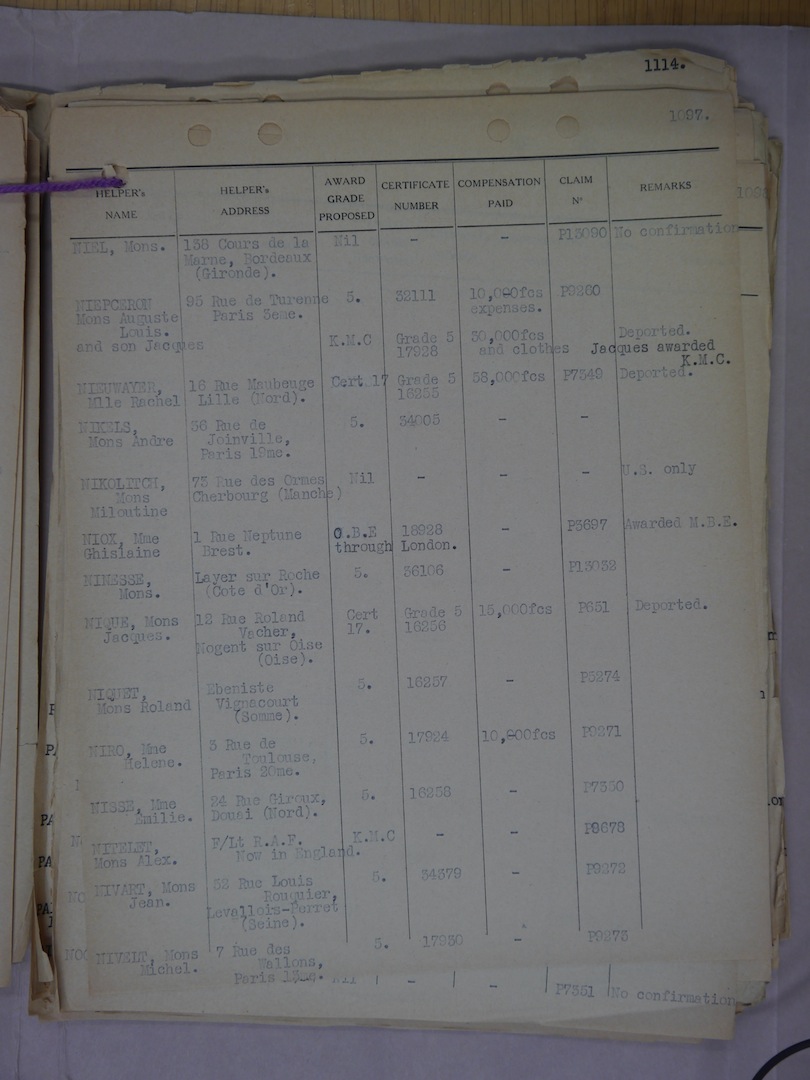 1114.
1097.
HELPER's NAME | HELPER's ADDRESS | AWARD GRADE PROPOSED | CERTIFICATE NUMBER | COMPENSATION PAID | CLAIM N° | REMARKS
NIEL, Mons. 138 Cours de la Nil - - P13090 No confirmation
Marne, Bordeaux
(Gironde).
NIEPCERON 95 Rue de Turenne 5. 32111 10,000fcs P9260
Mons Auguste Paris 3eme. expenses.
Louis. K.M.C Grade 5 30,000fcs Deported.
and son Jacques 17928 and clothes Jacques awarded
K.M.C.
NIEUWAYER, 16 Rue Maubeuge Cert 17 Grade 5 58,000fcs P7349 Deported.
Mlle Rachel Lille (Nord). 16255
NIKELS, 36 Rue de 5. 34005 - -
Mons Andre Joinville,
Paris 19me.
NIKOLITCH, 73 Rue des Ormes Nil - - - U.S. only
Mons Cherbourg (Manche)
Miloutine
NIOX, Mme 1 Rue Neptune O.B.E 18928 - P3697 Awarded M.B.E.
Ghislaine Brest. through London.
NINESSE, Layer sur Roche 5. 36106 - P13032
Mons. (Cote d'Or).
NIQUE, Mons 12 Rue Roland Cert Grade 5 15,000fcs P651 Deported.
Jacques. Vacher, 17. 16256
Nogent sur Oise
(Oise).
NIQUET, Ebeniste 5. 16257 - P5274
Mons Roland Vignacourt
(Somme).
NIRO, Mme 3 Rue de 5. 17924 10,000fcs P9271
Helene. Toulouse,
Paris 20me.
NISSE, Mme 24 Rue Giroux, 5. 16258 - P7350
Emilie. Douai (Nord).
NITELET, F/Lt R.A.F. K.M.C - - P9678
Mons Alex. Now in England.
NIVART, Mons 52 Rue Louis 5. 34379 - P9272
Jean. Rouquier,
Levallois-Perret
(Seine).
NIVELT, Mons 7 Rue des 5. 17930 - P9273
Michel. Wallons,
Paris 13me. Nil - - P7351 No confirmation